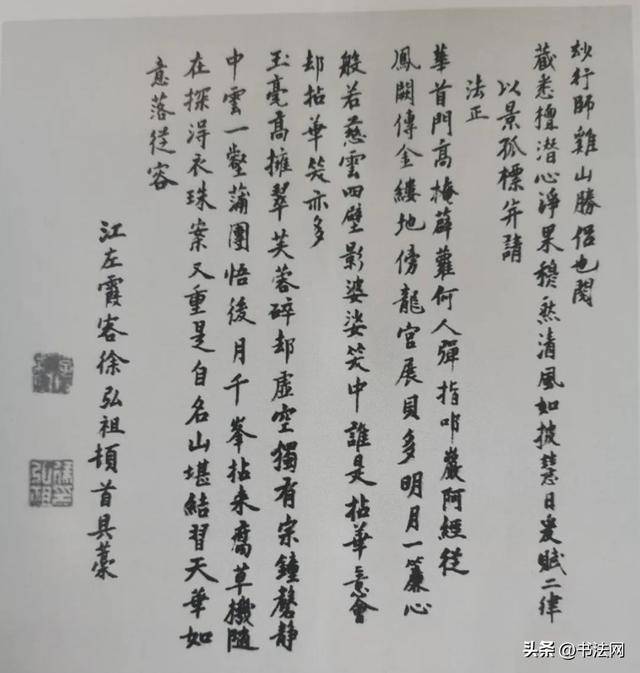 妙行師雞山勝侶也閱
藏悉檀潛心淨果穆然清風如披慧日爰賦二律
以景孤標并請
法正
華首門高掩薜蘿何人彈指叩巖阿經從
鳳闕傳金縷地傍龍宮展貝多明月一簾心
般若慈雲四壁影婆娑笑中誰是拈華意會
却拈華笑亦多
玉毫高擁翠芙蓉碎却虛空獨有宗鐘磬静
中雲一壑蒲團悟後月千峯拈来腐草機隨
在探得衣珠案又重是自名山堪結習天華如
意落從容
江左霞客徐弘祖頓首具藁
头条 @书法网